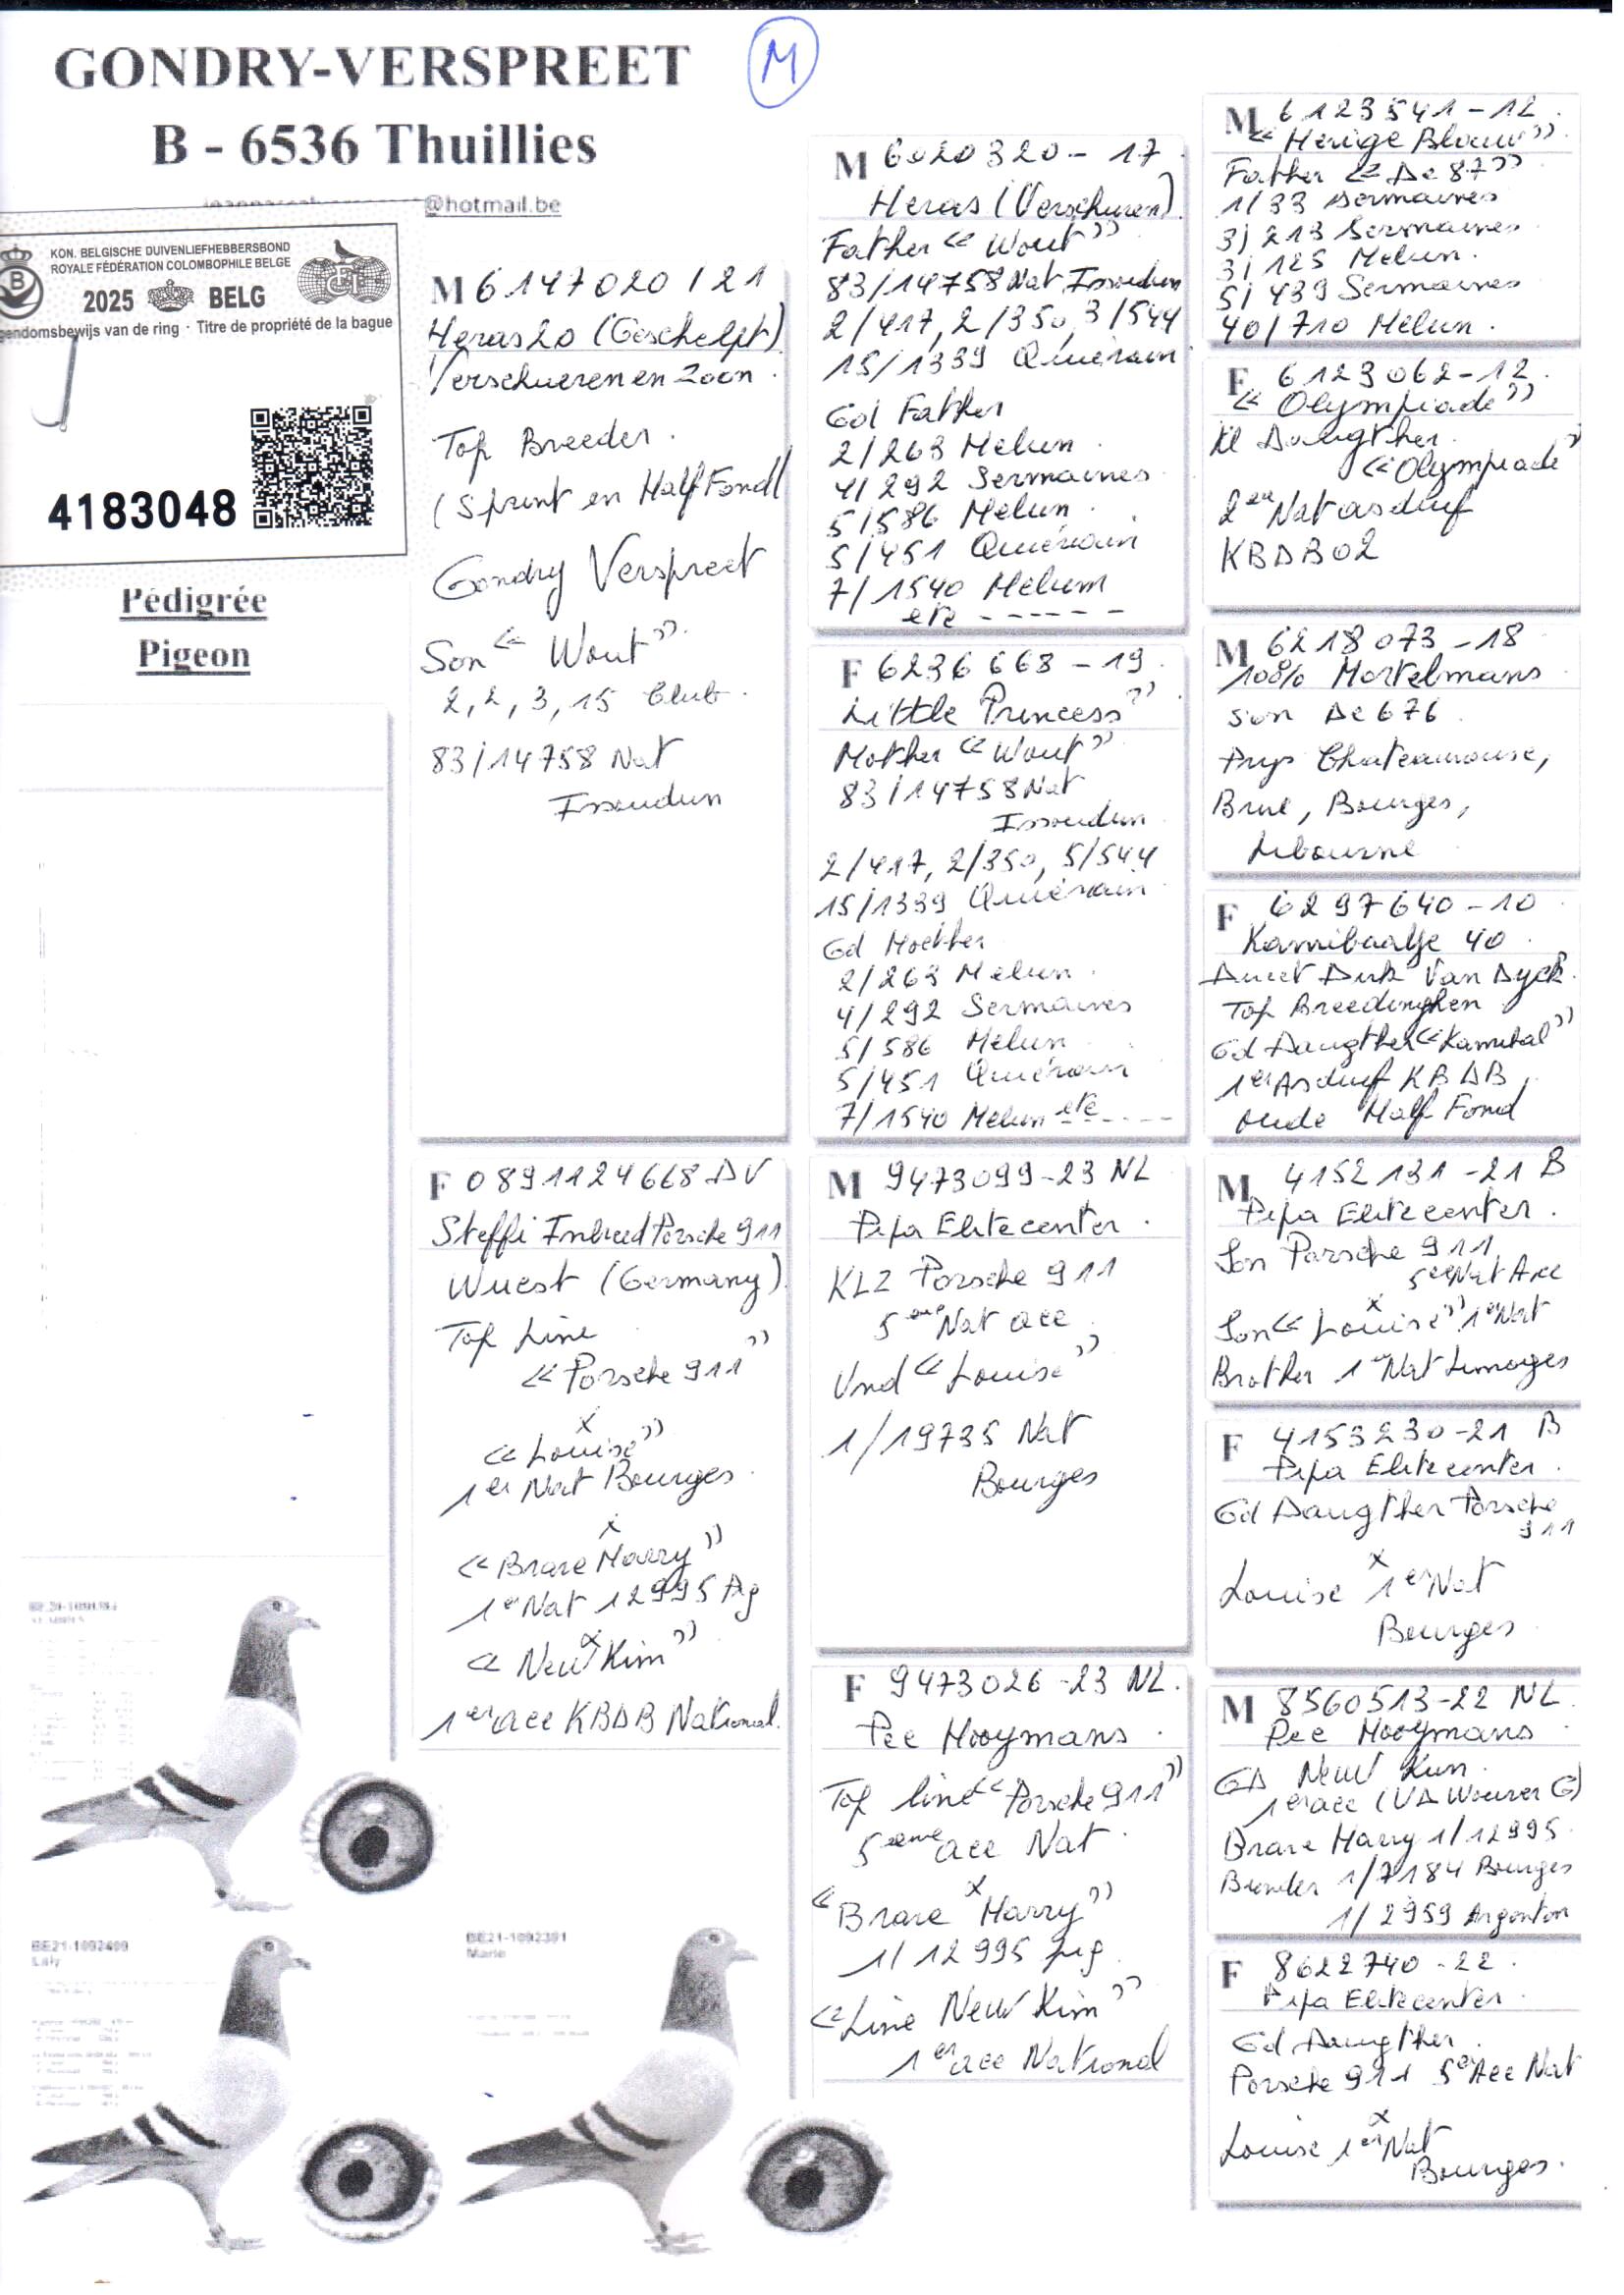 GONDRY-VERSPREET
M
B - 6536 Thuillies
@hotmail.be
KON. BELGISCHE DUIVENLIEFHEBBERSBOND
ROYALE FÉDÉRATION COLOMBOPHILE BELGE
2025 BELG
gendomsbewijs van de ring · Titre de propriété de la bague
4183048
Pédigrée
Pigeon
M 6147020 / 21
Heras 20 (Geschelpt)
Verschueren en Zoon.
Top Breeder.
(Sprint en Half Fond)
Gondry Verspreet
Son « Wout ».
2, 2, 3, 15 Club.
83/14758 Nat
Issoudun
F 0891124668 DV
Steffi Inbreed Porsche 911
Wuest (Germany).
Top Line
« Porsche 911 »
x
« Louise »
1er Nat Bourges.
x
« Brave Harry »
1er Nat 12995 Pig
x
« New Kim »
1er ace KBDB National.
M 6020320 - 17
Heras (Verschuren)
Father « Wout »
83/14758 Nat Issoudun
2/417, 2/350, 3/544
15/1339 Quiévrain
Gd Father
2/263 Melun.
4/292 Sermaines
5/586 Melun.
5/451 Quiévrain
7/1540 Melum
etc ------
F 6236668 - 19.
Little Princess ».
Mother « Wout »
83/14758 Nat
Issoudun
2/417, 2/350, 5/544
15/1339 Quiévrain.
Gd Moether
2/263 Melun.
4/292 Sermaines
5/586 Melun.
5/451 Quiévrain
7/1540 Melun etc -----
M 9473099-23 NL
Pipa Elitecenter.
KLZ Porsche 911
5eme Nat ace
Und « Louise »
1/19735 Nat
Bourges
F 9473026-23 NL.
Pee Hooymans.
Top line « Porsche 911 »
5eme ace Nat.
x
« Brave Harry »
1/12995 pig.
« Line New Kim »
1er ace National
M 6123541-12.
« Herige Blauw ».
Father « De 87 »
1/33 Sermaines
3/213 Sermaines.
3/125 Melun.
5/439 Sermaines
40/710 Melun.
F 6123062-12.
« Olympiade »
Kl Daugther.
« Olympiade »
2eme Nat asduif
KBDB 02
M 6218073-18
100% Mortelmans
Son De 676.
Prys Chateauroux,
Brive, Bourges,
Libourne
F 6297640-10
Kannibaaltje 40.
Direct Dirk Van Dyck.
Top Breedinghen
Gd Daugther « Kannibal »
1er Asduif KBDB,
oude Half Fond
M 4152131-21 B
Pipa Elitecenter.
Son Porsche 911
5eme Nat Ace
x
Son « Louise » 1er Nat
Brother 1er Nat Limoges
F 4153230-21 B
Pipa Elitecenter.
Gd Daugther Porsche
911
x
Louise 1er Nat
Bourges
M 8560513-22 NL.
Pee Hooymans
GD New Kim.
1er ace (VD Wouwer G)
Brave Harry 1/12995.
1/7184 Bourges
1/2959 Argenton
F 8622740-22.
Pipa Elitecenter.
Gd Daugther.
Porsche 911 5e Ace Nat
x
Louise 1er Nat
Bourges.
BE21-1092409
Laly
BE21-1092391
Marie